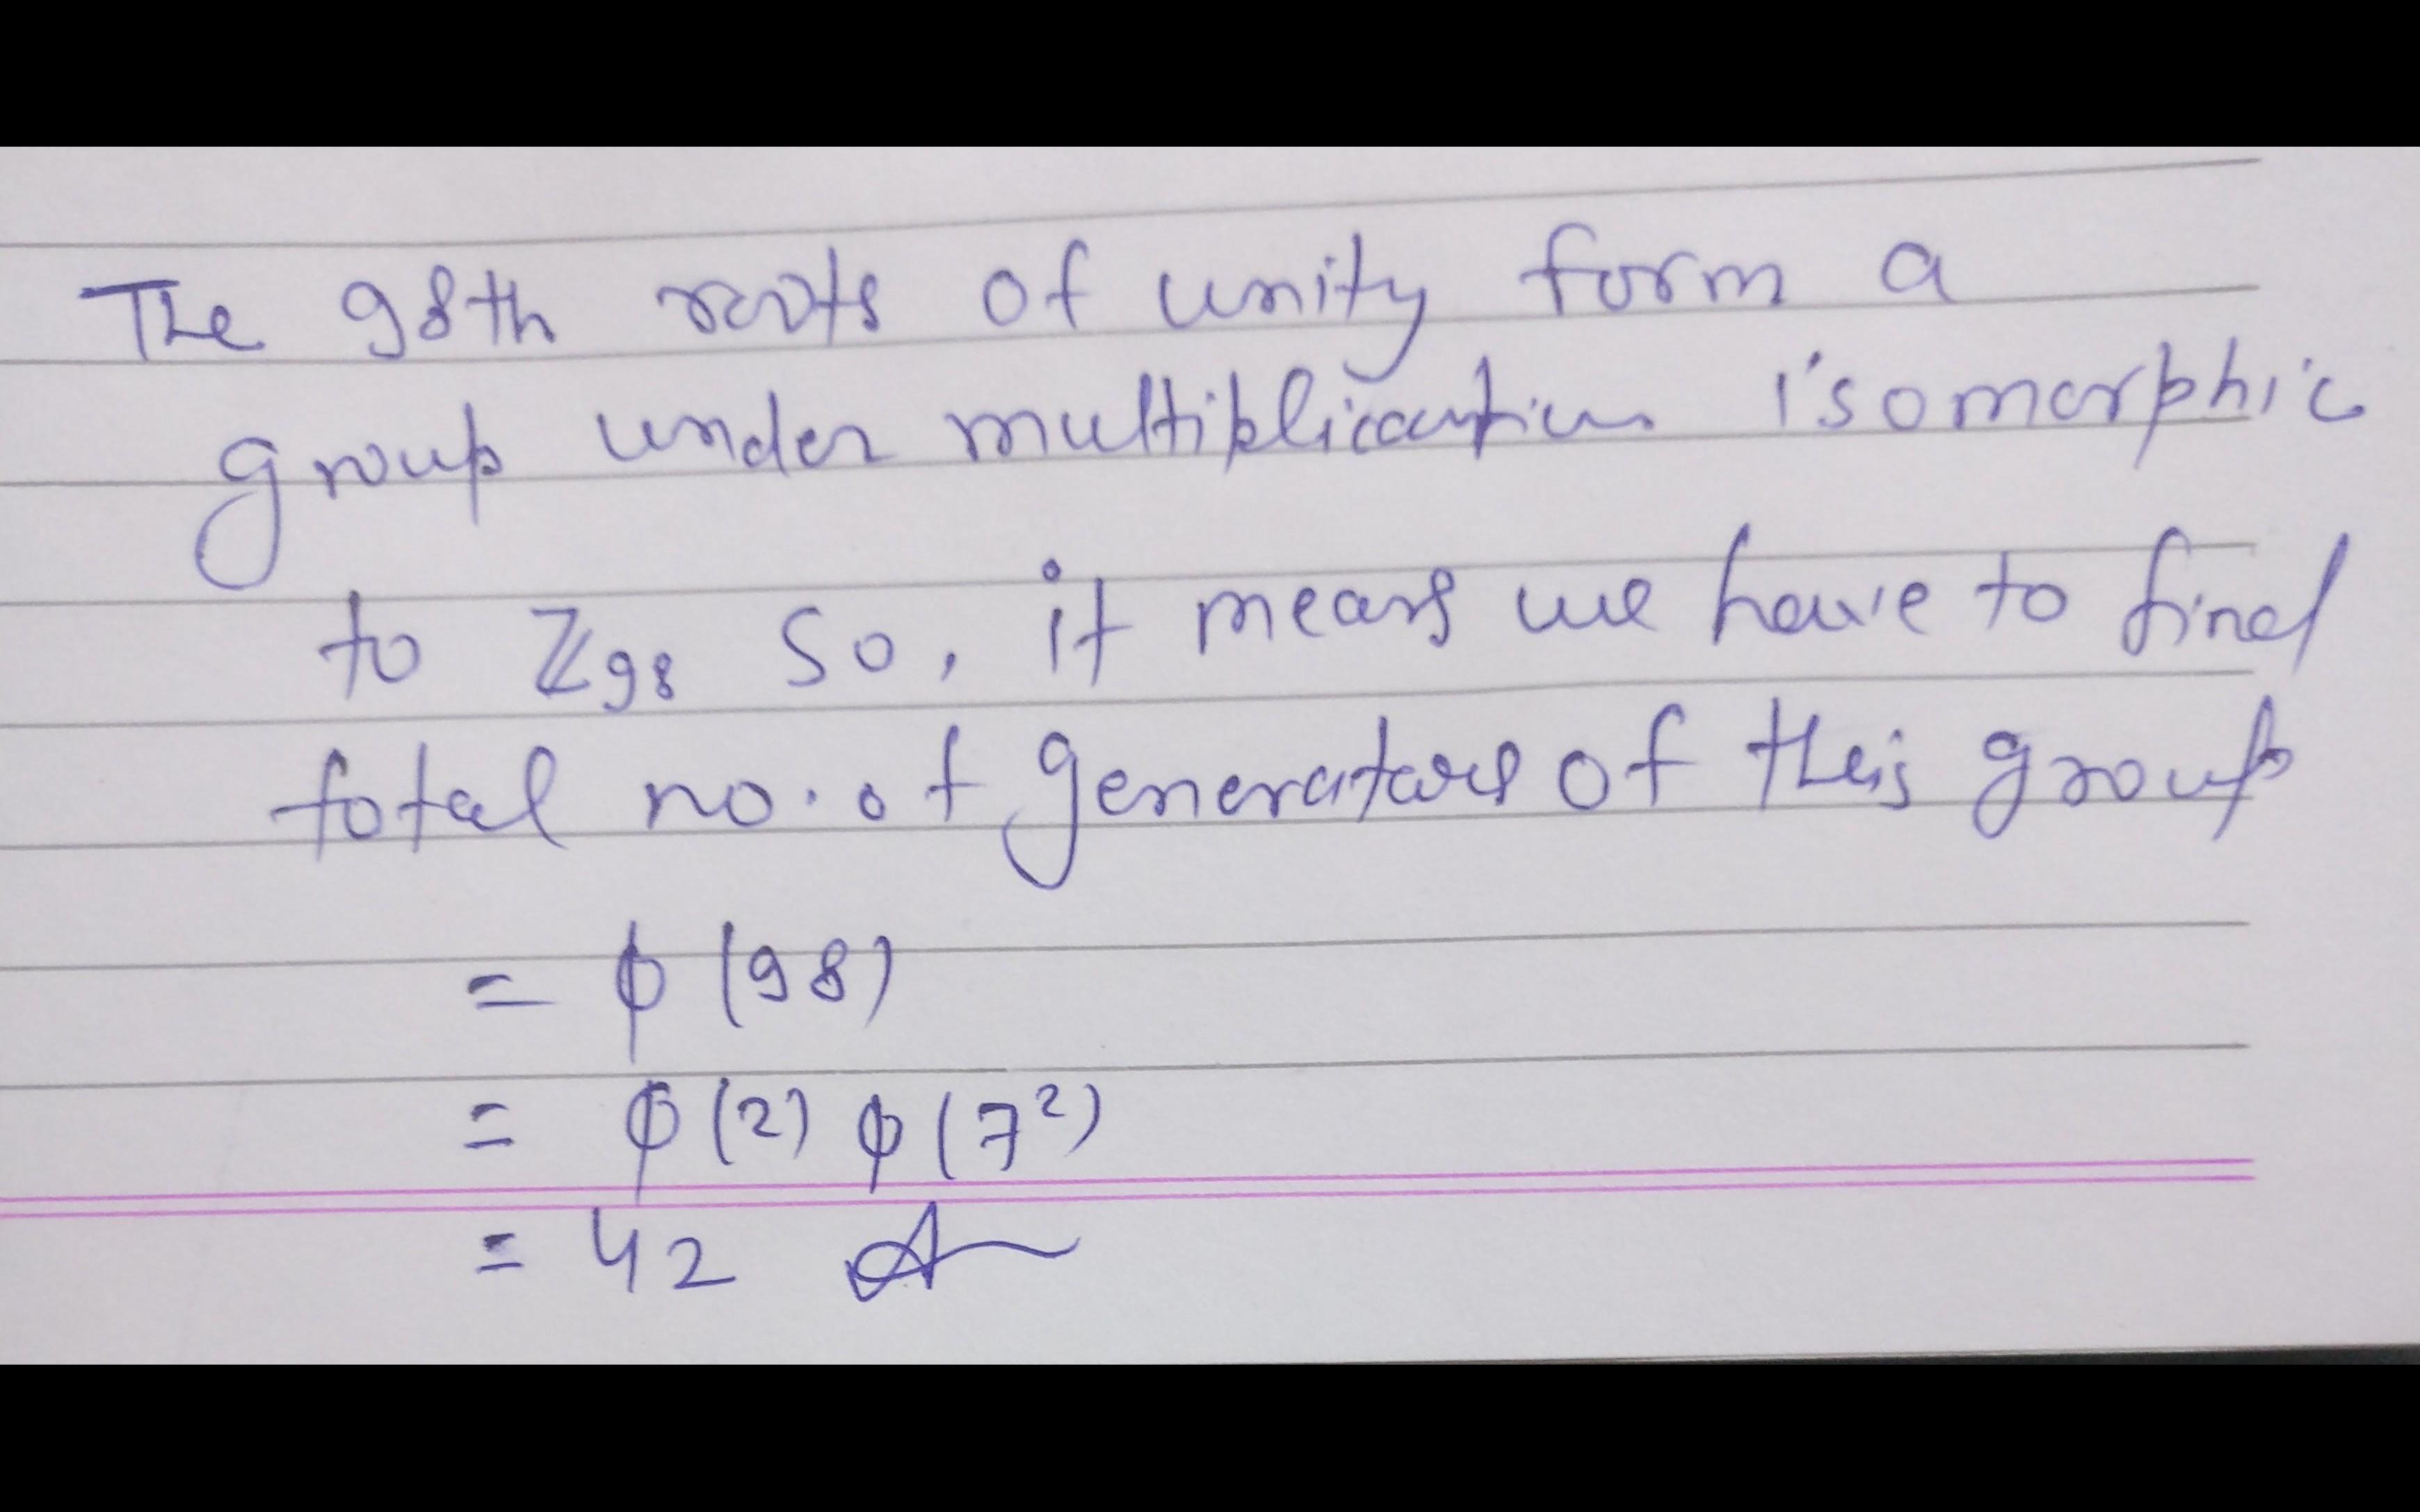 The 98th roots of unity form a
group under multiplication isomorphic
to ℤ₉₈ So, it means we have to find
total no. of generators of this group
= ϕ(98)
= ϕ(2) ϕ(7²)
= 42